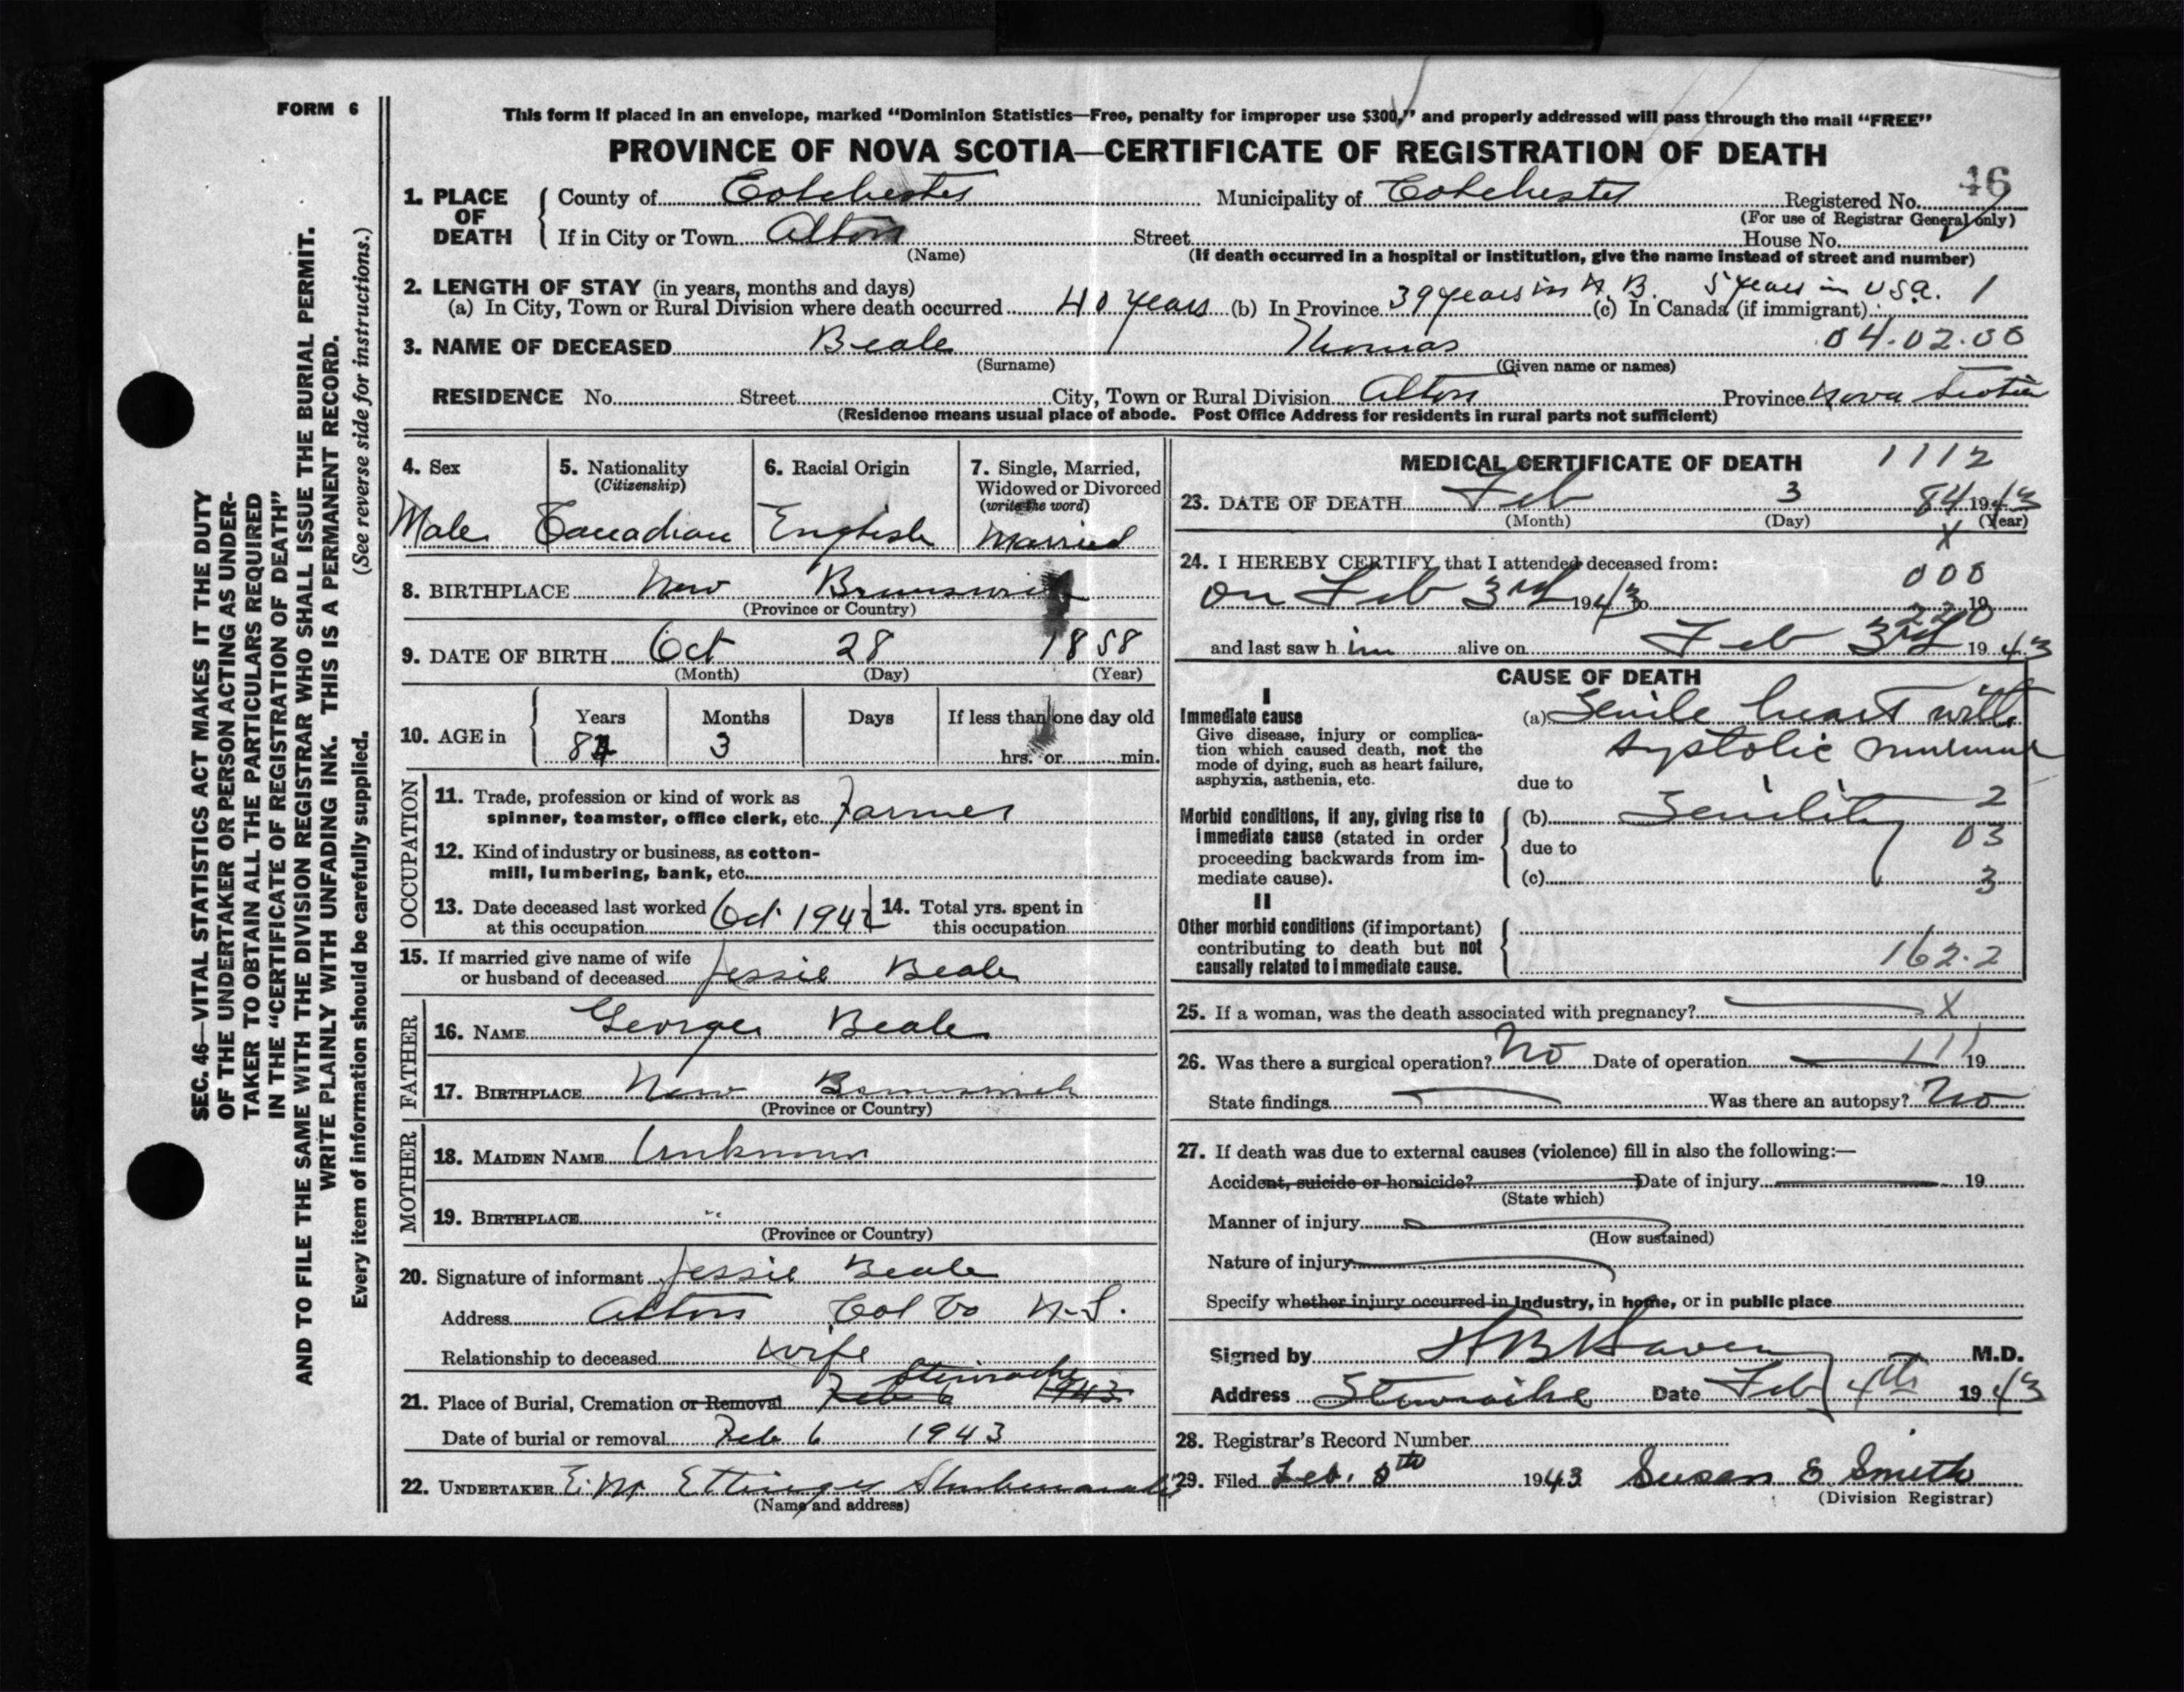 FORM 6
SEC. 46—VITAL STATISTICS ACT MAKES IT THE DUTY
OF THE UNDERTAKER OR PERSON ACTING AS UNDER-
TAKER TO OBTAIN ALL THE PARTICULARS REQUIRED
IN THE "CERTIFICATE OF REGISTRATION OF DEATH"
AND TO FILE THE SAME WITH THE DIVISION REGISTRAR WHO SHALL ISSUE THE BURIAL PERMIT.
WRITE PLAINLY WITH UNFADING INK. THIS IS A PERMANENT RECORD.
Every item of information should be carefully supplied. (See reverse side for instructions.)
This form if placed in an envelope, marked "Dominion Statistics—Free, penalty for improper use $300," and properly addressed will pass through the mail "FREE"
PROVINCE OF NOVA SCOTIA—CERTIFICATE OF REGISTRATION OF DEATH
46
1. PLACE OF DEATH County of Colchester Municipality of Colchester Registered No.
(For use of Registrar General only)
If in City or Town Alton Street House No.
(Name) (If death occurred in a hospital or institution, give the name instead of street and number)
2. LENGTH OF STAY (in years, months and days)
(a) In City, Town or Rural Division where death occurred 40 years (b) In Province 39 years in N.B. 5 years in USA. (c) In Canada (if immigrant) 1
3. NAME OF DECEASED Beale Thomas 04.02.00
(Surname) (Given name or names)
RESIDENCE No. Street City, Town or Rural Division Alton Province Nova Scotia
(Residence means usual place of abode. Post Office Address for residents in rural parts not sufficient)
4. Sex 5. Nationality 6. Racial Origin 7. Single, Married,
(Citizenship) Widowed or Divorced
(write the word)
Male Canadian English Married
8. BIRTHPLACE New Brunswick
(Province or Country)
9. DATE OF BIRTH Oct 28 1858
(Month) (Day) (Year)
10. AGE in Years Months Days If less than one day old
84 3 hrs. or min.
OCCUPATION
11. Trade, profession or kind of work as
spinner, teamster, office clerk, etc. Farmer
12. Kind of industry or business, as cotton-
mill, lumbering, bank, etc.
13. Date deceased last worked at this occupation Oct 1942 14. Total yrs. spent in
this occupation
15. If married give name of wife
or husband of deceased Jessie Beale
FATHER
16. NAME George Beale
17. BIRTHPLACE New Brunswick
(Province or Country)
MOTHER
18. MAIDEN NAME Unknown
19. BIRTHPLACE "
(Province or Country)
20. Signature of informant Jessie Beale
Address Alton Col Co N.S.
Relationship to deceased wife
Stewiacke
21. Place of Burial, Cremation or Removal Feb 6 1943
Date of burial or removal Feb 6 1943
22. UNDERTAKER E. M. Ettinger Shubenacadie
(Name and address)
MEDICAL CERTIFICATE OF DEATH 1112
23. DATE OF DEATH Feb 3 84 1943
(Month) (Day) (Year)
X
24. I HEREBY CERTIFY that I attended deceased from:
000
on Feb 3rd 1943 to 19
220
and last saw him alive on Feb 3rd 1943
CAUSE OF DEATH
I
Immediate cause (a) Senile heart with
Give disease, injury or complica-
tion which caused death, not the systolic murmur
mode of dying, such as heart failure,
asphyxia, asthenia, etc. due to
Morbid conditions, if any, giving rise to (b) Senility 2
immediate cause (stated in order 03
proceeding backwards from im- due to
mediate cause). (c) 3
II
Other morbid conditions (if important)
contributing to death but not
causally related to immediate cause. 162.2
25. If a woman, was the death associated with pregnancy? X
26. Was there a surgical operation? No Date of operation 111 19
State findings Was there an autopsy? No
27. If death was due to external causes (violence) fill in also the following:—
Accident, suicide or homicide? Date of injury 19
(State which)
Manner of injury
(How sustained)
Nature of injury
Specify whether injury occurred in industry, in home, or in public place
Signed by M.D.
Address Stewiacke Date Feb 4th 1943
28. Registrar's Record Number
29. Filed Feb. 5th 1943 Susan E Smith
(Division Registrar)